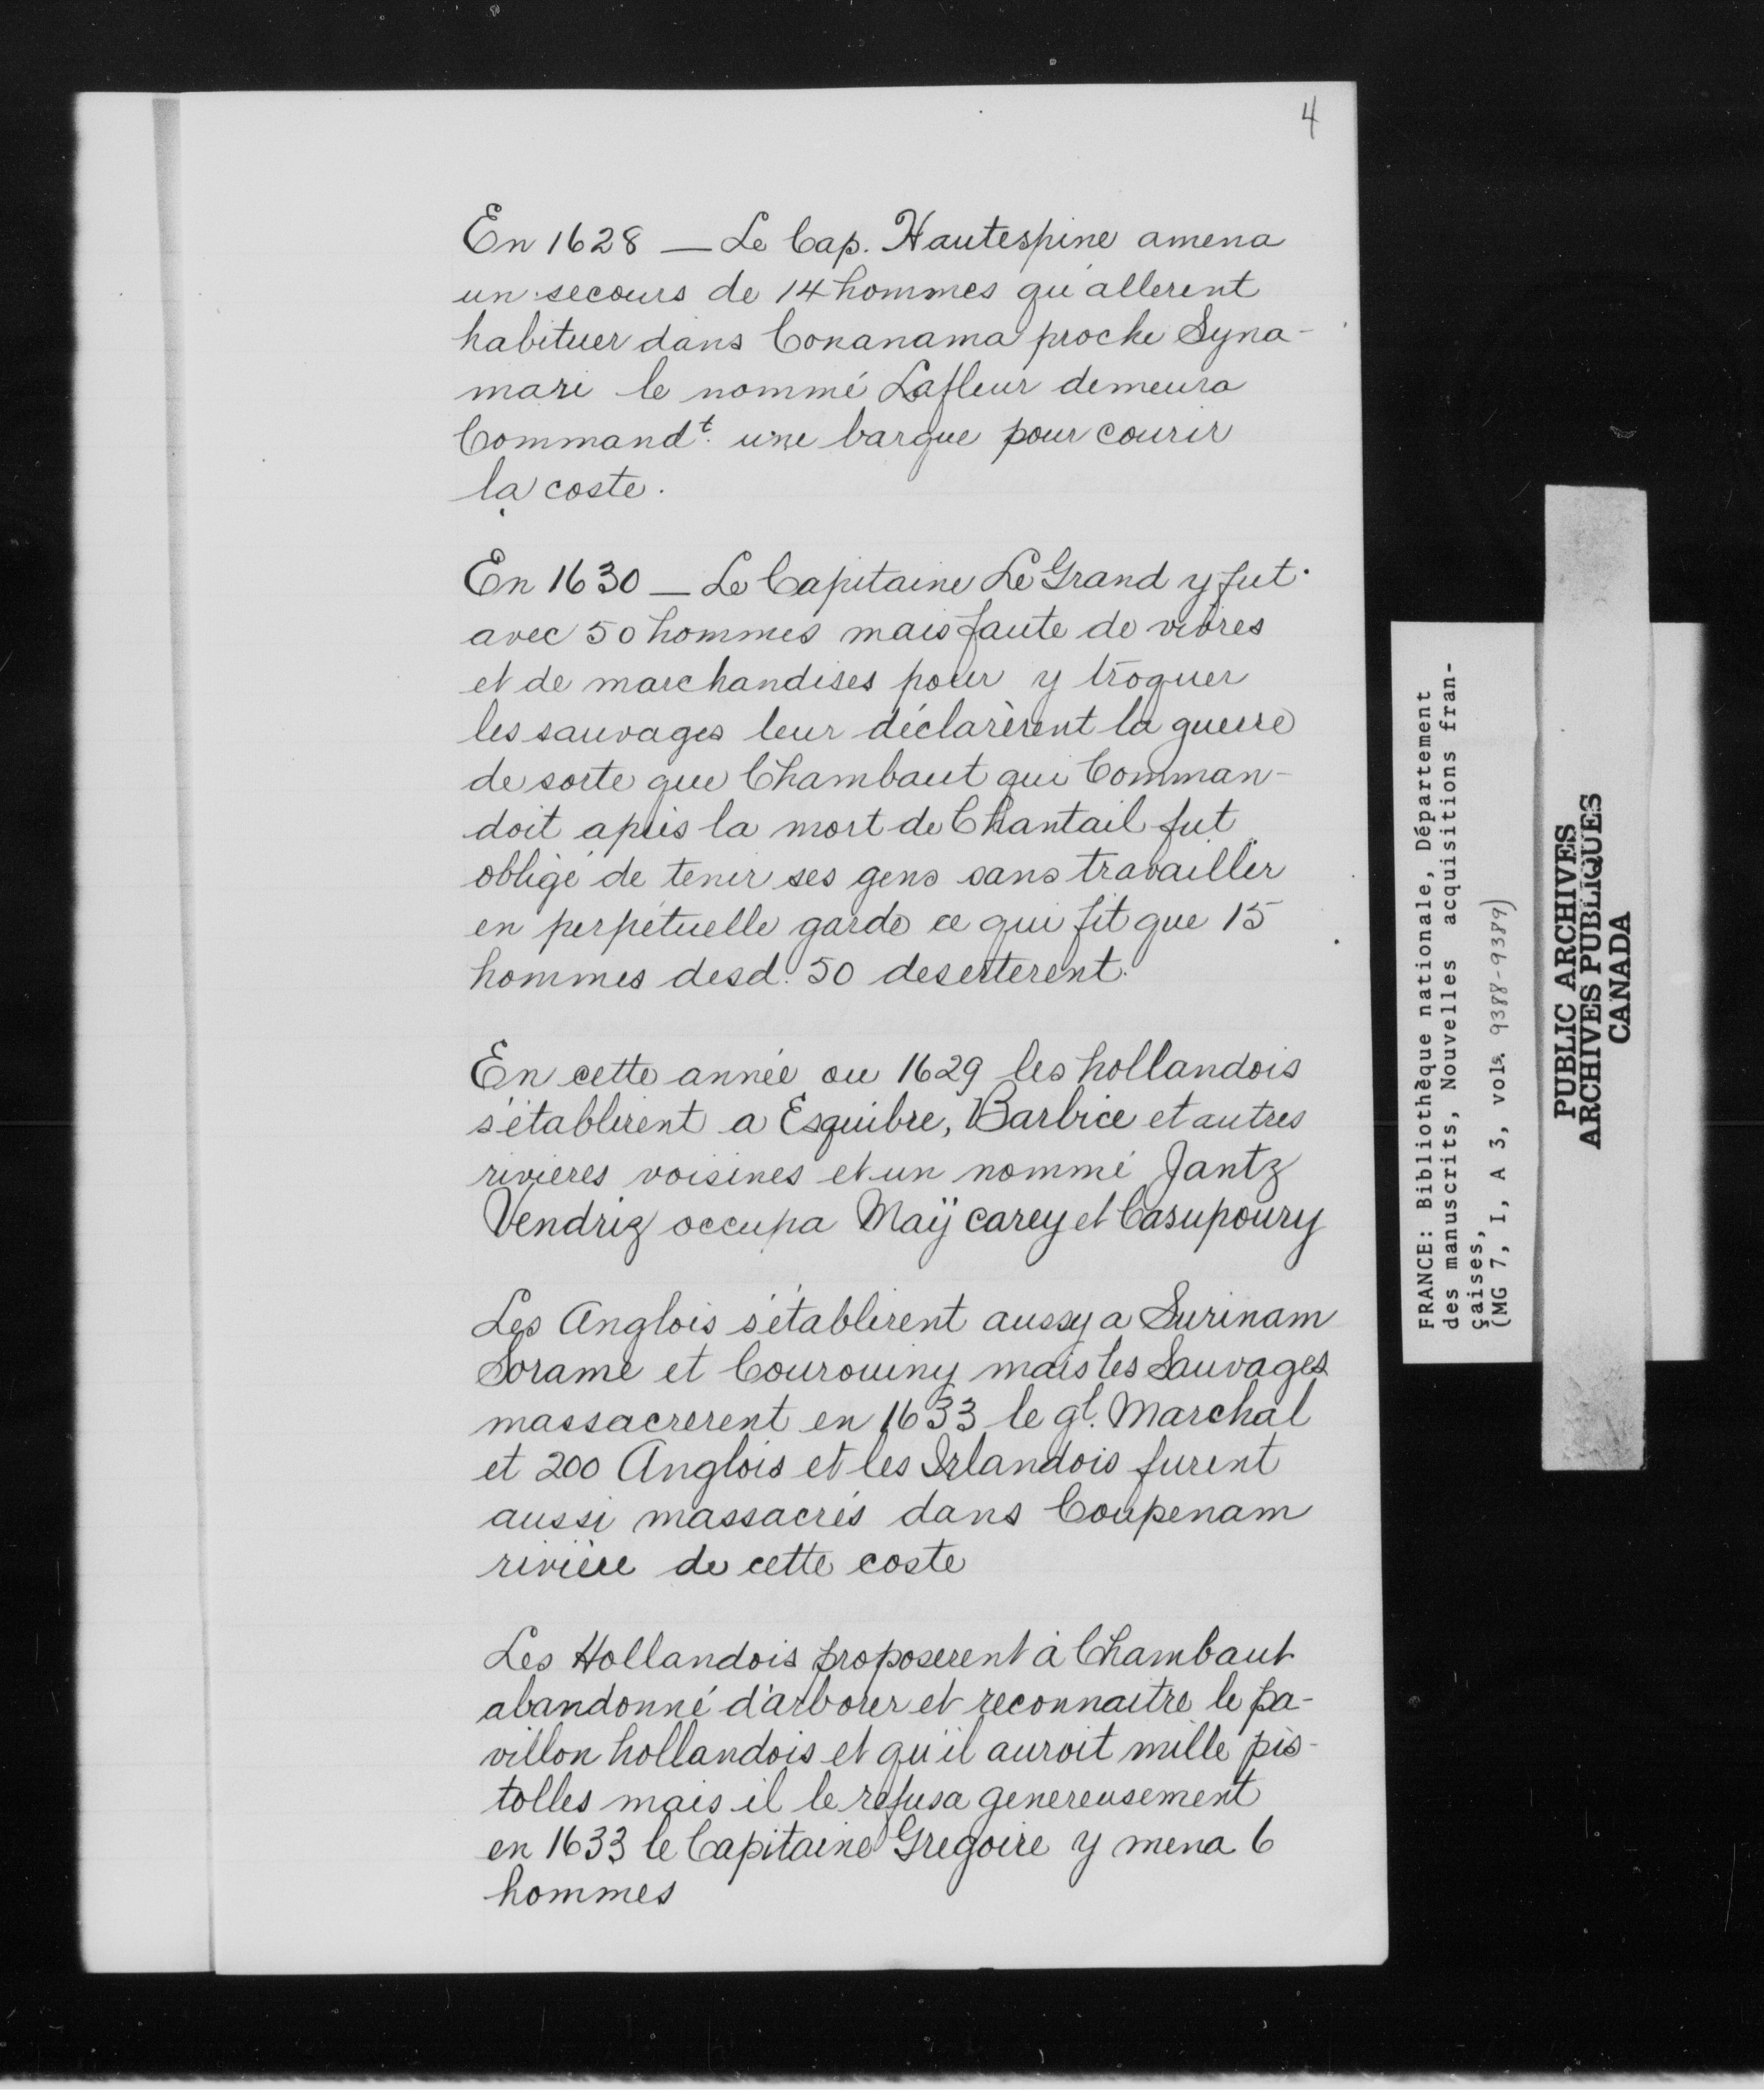 4
En 1628 — Le Cap. Hautespine amena
un secours de 14 hommes qu'allerent
habituer dans Conanama proche Syna-
mari le nommé Lafleur demeura
Commandt. une barque pour courir
la coste.
En 1630 — Le Capitaine Le Grand y fut
avec 50 hommes mais faute de vivres
et de marchandises pour y troquer
les sauvages leur déclarèrent la guerre
de sorte que Chambaut qui Comman-
doit après la mort de Chantail fut
obligé de tenir ses gens sans travailler
en perpétuelle garde ce qui fit que 15
hommes desd. 50 deserterent.
En cette année ou 1629 les hollandois
s'établirent a Esquibre, Barbice et autres
rivieres voisines et un nommé Jantz
Vendriz occupa Maÿ carey et Casupoury
Les Anglois s'établirent aussy a Surinam
Sorame et Courouiny mais les Sauvages
massacrerent en 1633 le gl. Marchal
et 200 Anglois et les Irlandois furent
aussi massacrés dans Coupenam
rivière de cette coste
Les Hollandois proposerent à Chambaut
abandonné d'arborer et reconnaitre le pa-
villon hollandois et qu'il auroit mille pis-
tolles mais il le refusa genereusement
en 1633 le Capitaine Gregoire y mena 6
hommes
FRANCE: Bibliothèque nationale, Département
des manuscrits, Nouvelles acquisitions fran-
çaises,
(MG 7, I, A 3, vols. 9388-9389)
PUBLIC ARCHIVES
ARCHIVES PUBLIQUES
CANADA